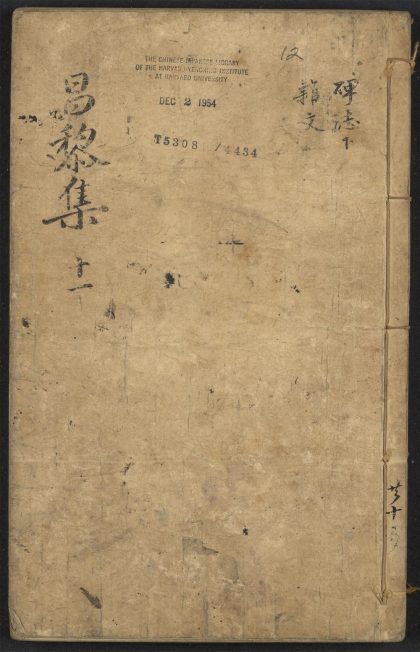 碑誌下
雜文
12
THE CHINESE-JAPANESE LIBRARY
OF THE HARVARD-YENCHING INSTITUTE
AT HARVARD UNIVERSITY
DEC 2 1954
T5308 /4434
昌黎集
十一
共十